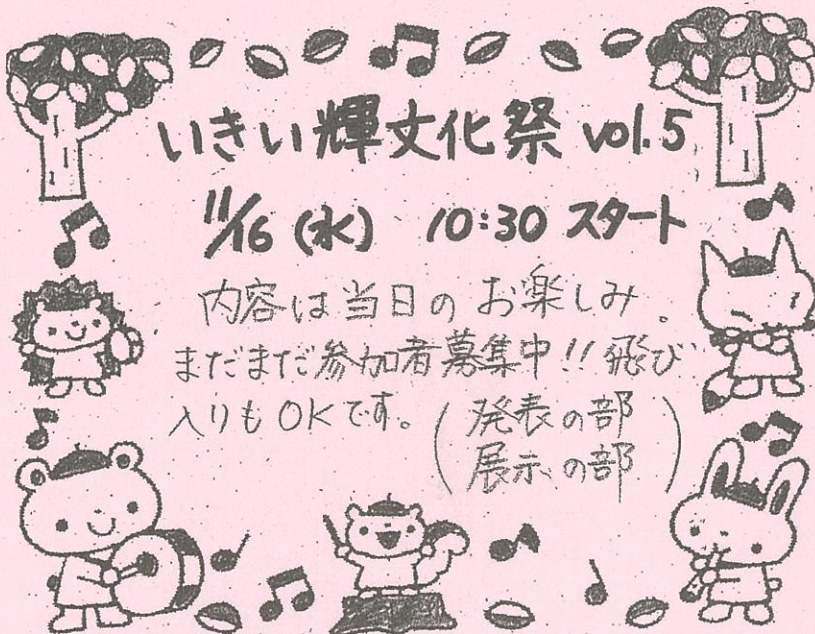 いきい輝文化祭 vol.5
11/16 (水) 10:30 スタート
内容は当日のお楽しみ。
まだまだ参加者募集中!! 飛び
入りもOKです。(発表の部
展示の部)